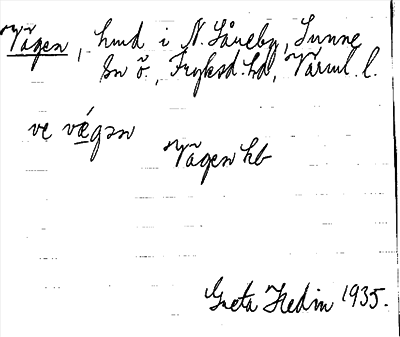 Vägen, hmd i N. Såneby, Sunne
sn ö., Fryksd. hd, Värml. l.
ve vǽgən
Vägen hb
Greta Hedin 1935.